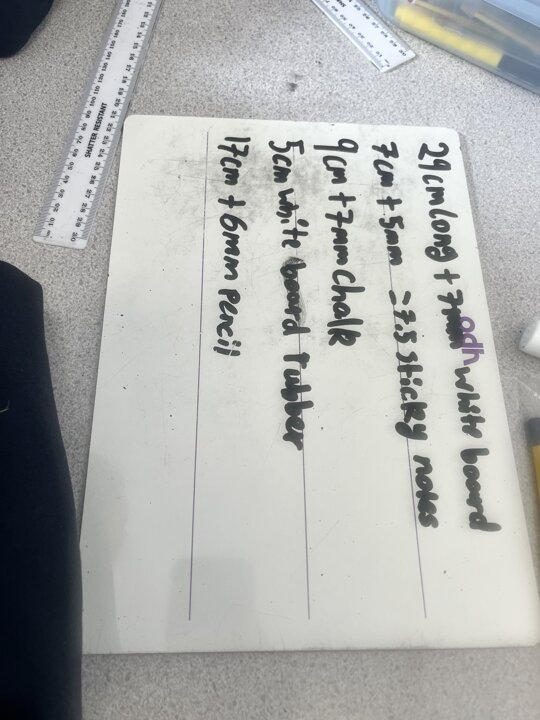 29cm long + 7mm white board
adh
7cm + 5mm = 7.5 sticky notes
9cm + 7mm chalk
5cm white board rubber
17cm + 6mm pencil
SHATTER RESISTANT